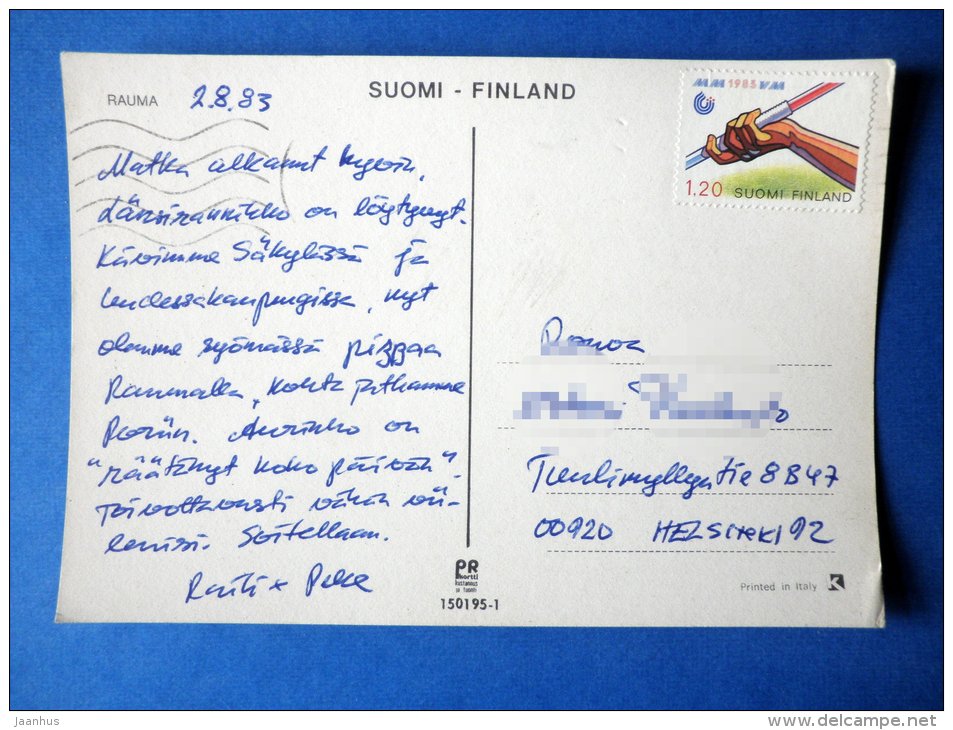 RAUMA 2.8.83
SUOMI - FINLAND
MM 1983 VM
1.20 SUOMI FINLAND
Matka alkanut hyvin,
Länsirannikko on löytynyt.
Kävimme Säkylässä ja
Uudessakaupungissa, nyt
olemme syömässä pizzaa
Raumalla, kohta jatkamme
Poriin. Aurinko on
"räätänyt koko päivän".
Toivottavasti vähän vii-
lenisi. Soitellaan.
Raili + Pekka
Rouva
Tuulimyllyntie 8 B 47
00920 HELSINKI 92
PR
kortti
150195-1
Printed in Italy K
Jaanhus
www.delcampe.net